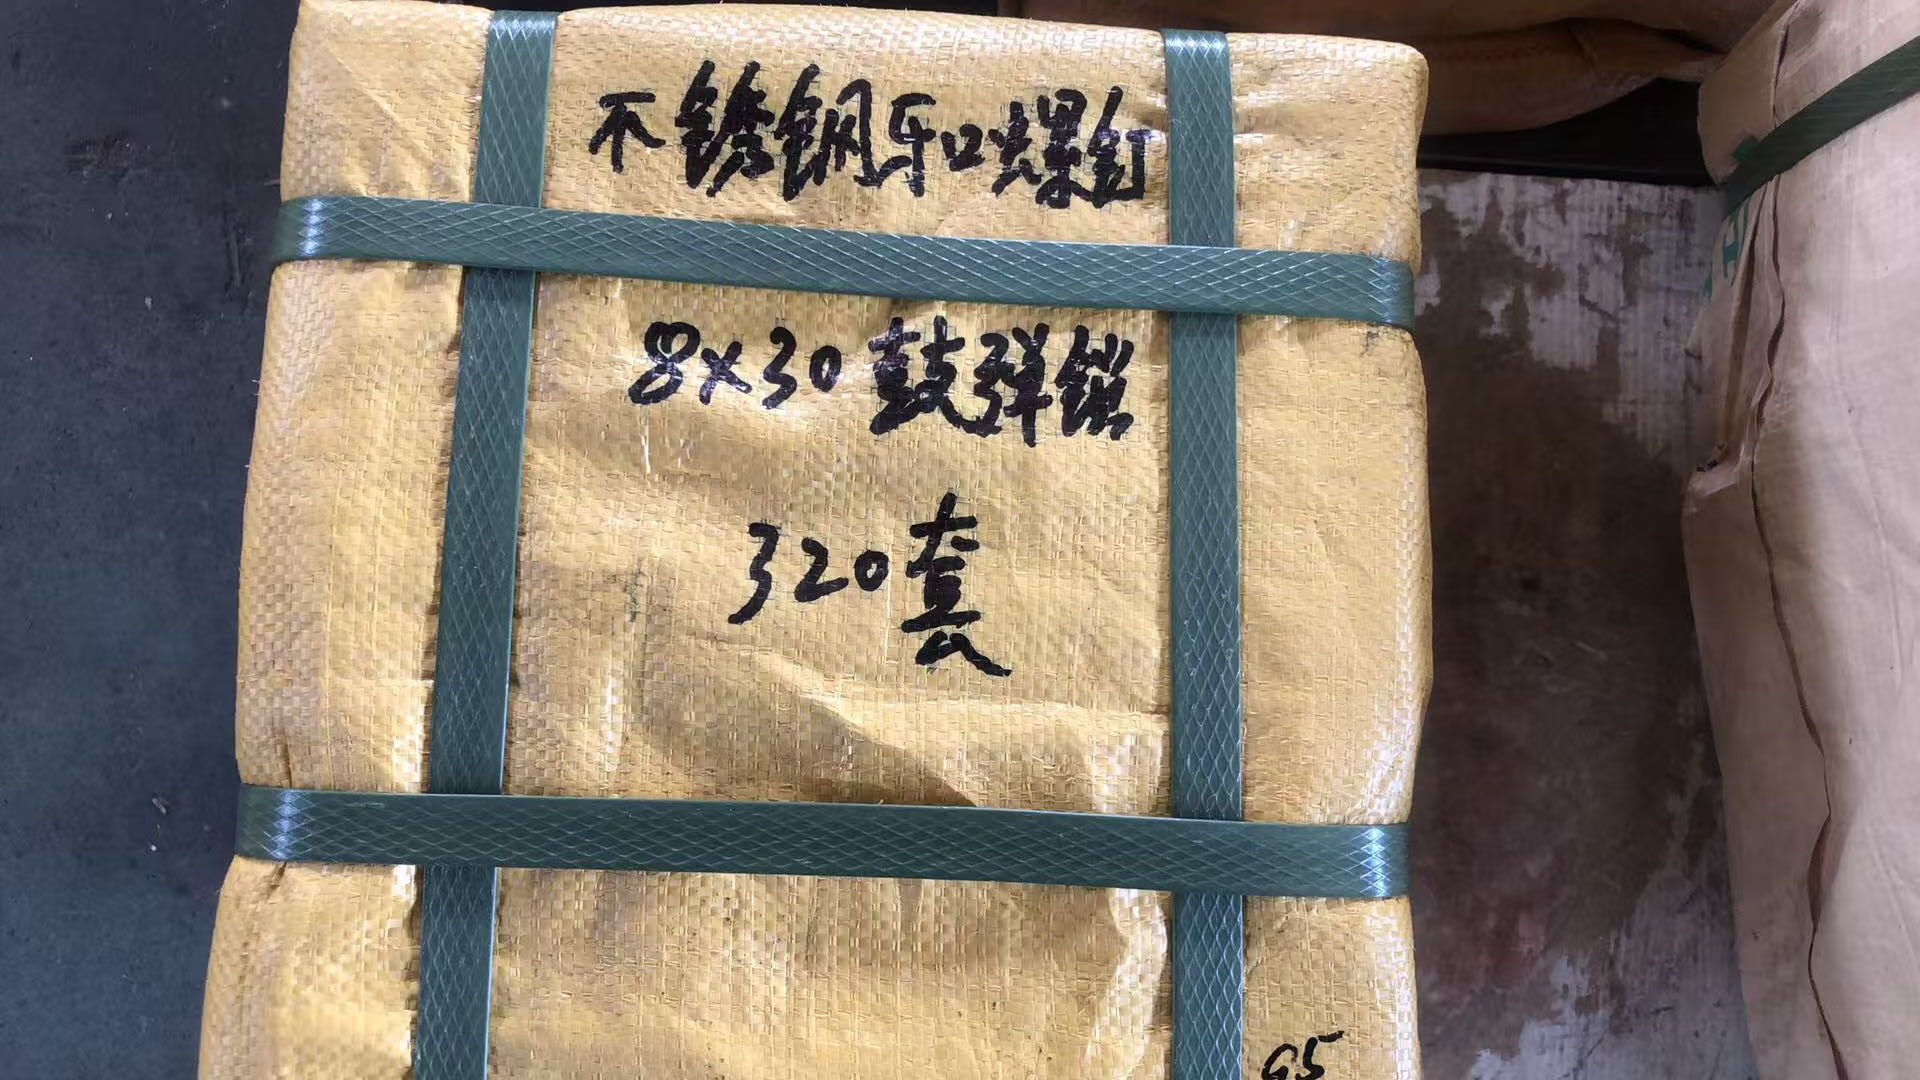 不锈钢牙口螺钉
8×30鼓弹锁
320套
G5